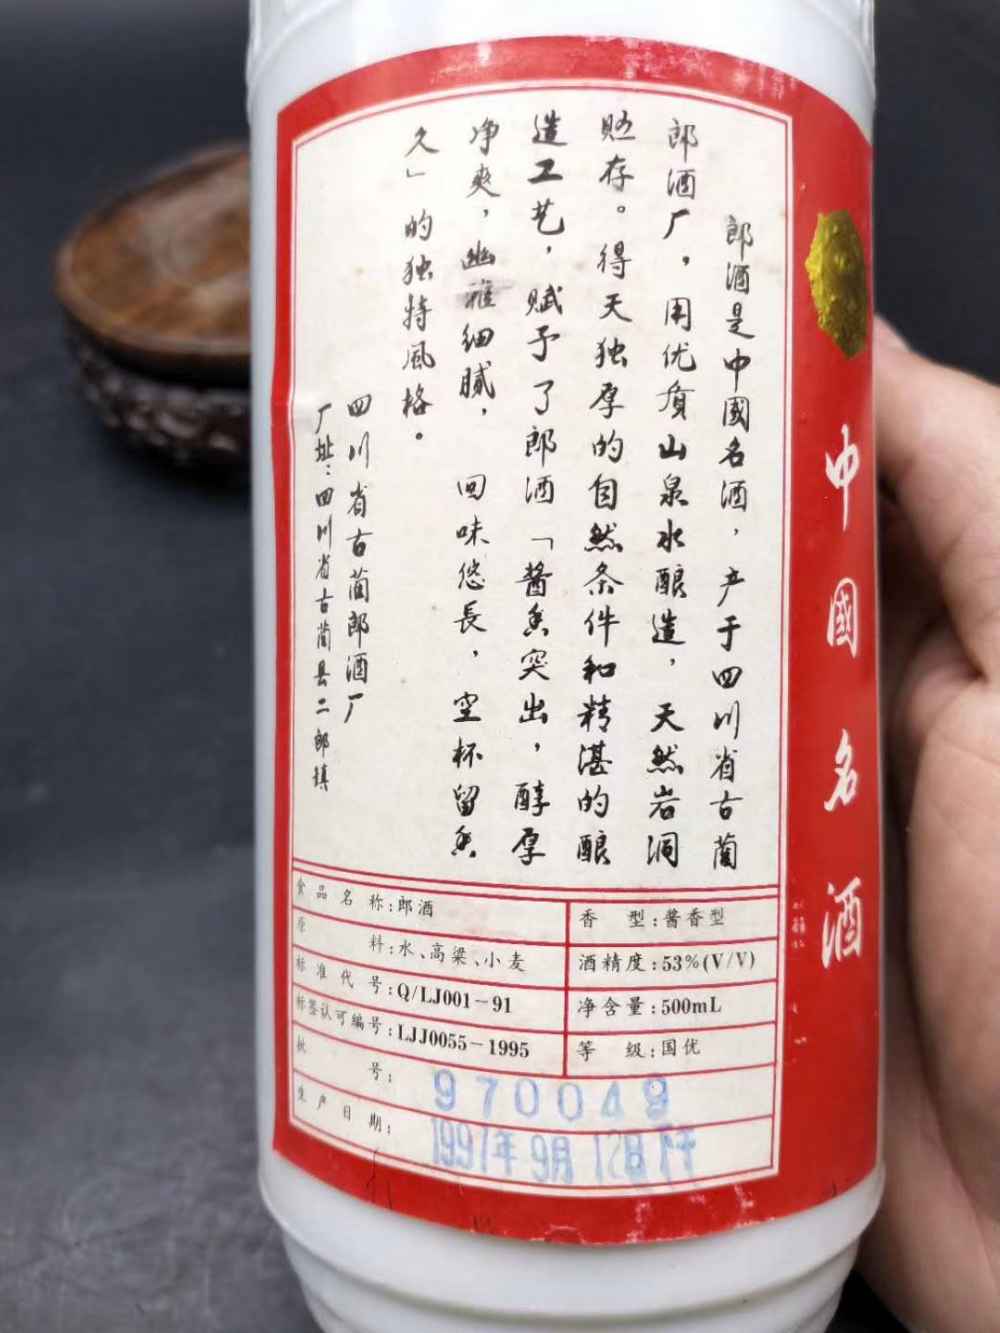 郎酒是中國名酒，产于四川省古蔺
郎酒厂，用优质山泉水酿造，天然岩洞
贮存。得天独厚的自然条件和精湛的酿
造工艺，赋予了郎酒「酱香突出，醇厚
净爽，幽雅细腻，回味悠長，空杯留香
久」的独特風格。
四川省古蔺郎酒厂
厂址：四川省古蔺县二郎镇
食品名称:郎酒
香型:酱香型
原料:水、高粱、小麦
酒精度:53%(V/V)
标准代号:Q/LJ001－91
净含量:500mL
标签认可编号:LJJ0055－1995
等级:国优
批号: 970049
生产日期: 1997年9月12日
中國名酒